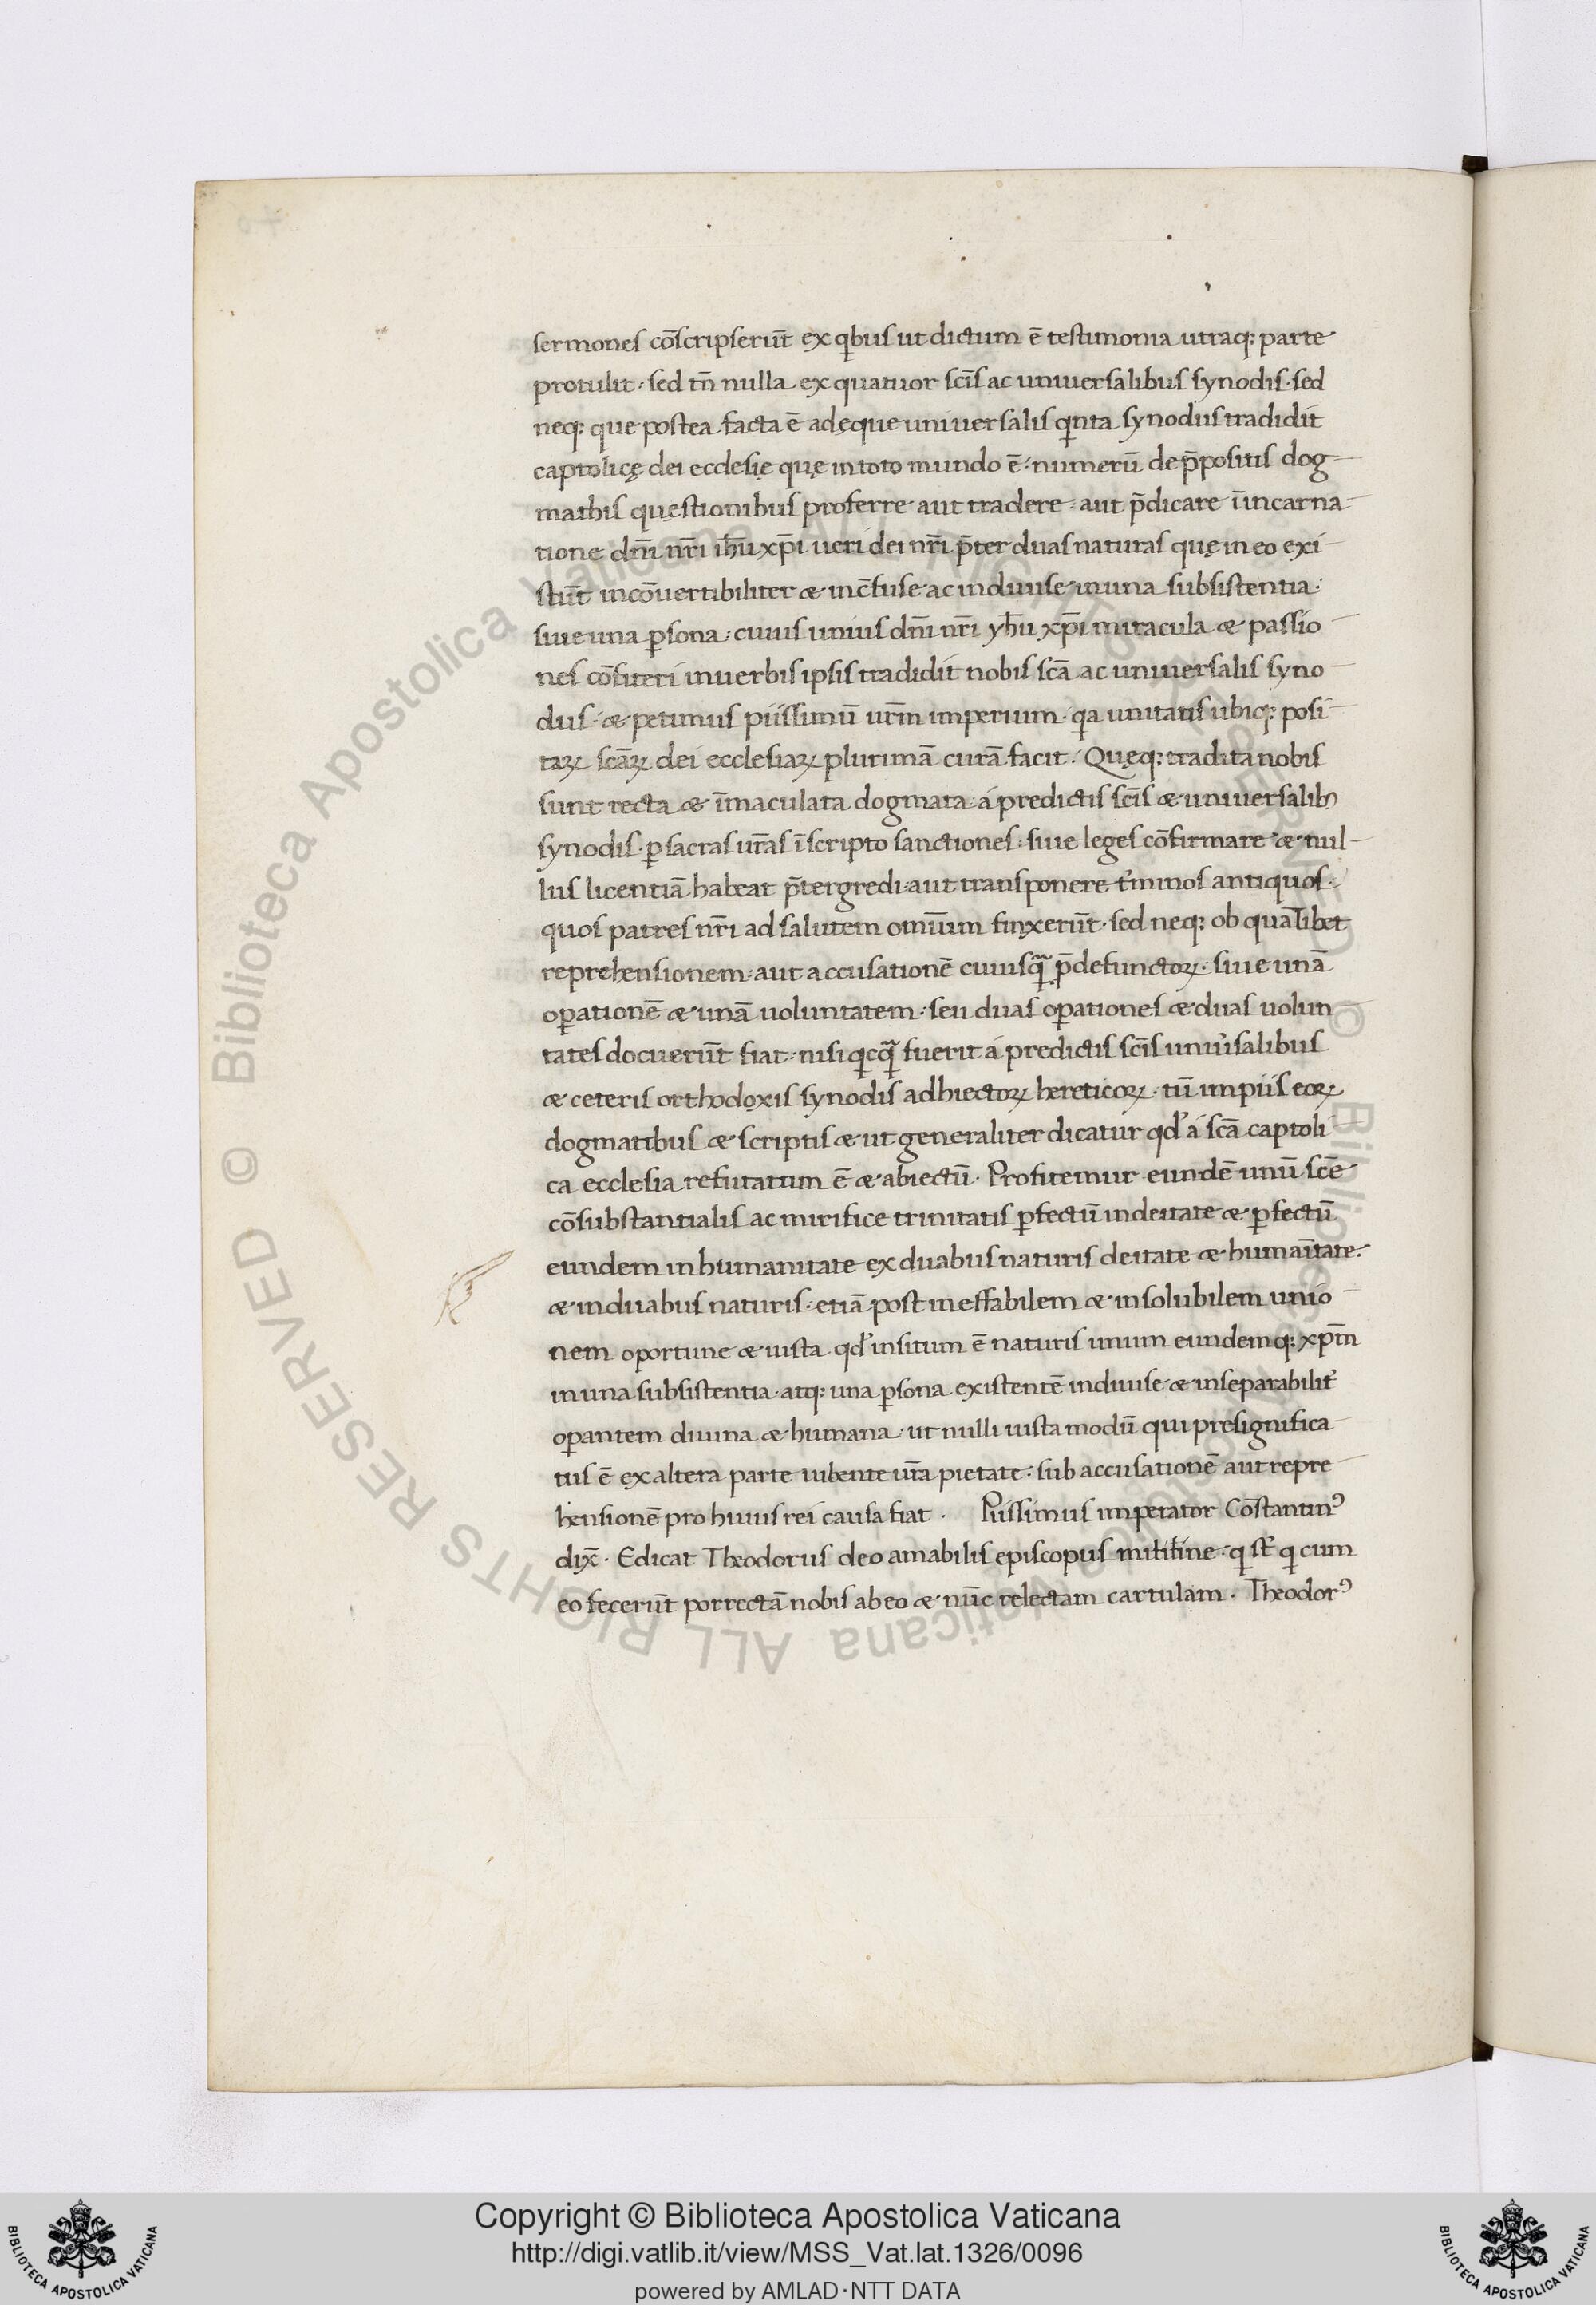 sermones cōscripserūt ex qbus ut dictum ē testimonia utraq: parte
protulit· sed tn̄ nulla ex quatuor scīs ac uniuersalibus synodis· sed
neq: que postea facta ē adęque uniuersalis qnta synodus tradidit
captolicę dei ecclesię quę in toto mundo ē· numerū de p̄positis dog
mathis quęstionibus proferre aut tradere· aut p̄dicare īincarna
tione dn̄i nr̄i ih̄u xp̄i ueri dei nr̄i p̄ter duas naturas quę in eo exi
stūt incōuertibiliter & inc̄fuse ac indiuise in una subsistentia·
siue una ꝑsona· cuius unius dn̄i nr̄i yh̄u xp̄i miracula & passio
nes cōfiteri in uerbis ipsis tradidit nobis scā ac uniuersalis syno
dus· & petimus piissimū ur̄m imperium· qa unitatis ubiq: posi
taꝝ scāꝝ dei ecclesiaꝝ plurimā curā facit· Quęq: tradita nobis
sunt recta & īmaculata dogmata á predictis scīs & uniuersalib;
synodis· ꝑ sacras ur̄as īscripto sanctiones· siue leges cōfirmare & nul
lus licentiā habeat p̄tergredi aut transponere t̄minos antiquos·
quos patres nr̄i ad salutem omīum finxerūt· sed neq: ob qualibet
reprehensionem· aut accusationē cuiusq̄ p̄defunctoꝝ· siue unā
oꝑationē & unā uoluntatem· seu duas oꝑationes & duas uolun
tates docuerūt fiat· nisi qcq̄ fuerit á predictis scīs uniūsalibus
& ceteris orthodoxis synodis adhiectoꝝ hereticoꝝ· tū impiis eoꝝ
dogmatibus & scriptis & ut generaliter dicatur qd̓ á scā captoli
ca ecclesia refutatum ē & abiectū· Profitemur eundē unū scē
cōsubstantialis ac mirifice trinitatis ꝑfectū in deitate & ꝑfectū
eundem in humanitate ex duabus naturis deitate & humāitate·
& in duabus naturis· etiā post ineffabilem & insolubilem unio
nem oportune & iusta qd̓ insitum ē naturis unum eundemq: xp̄m
in una subsistentia· atq: una ꝑsona existentē indiuise & inseparabilit̓
oꝑantem diuina & humana· ut nulli iusta modū qui presignifica
tus ē ex altera parte iubente ur̄a pietate· sub accusationē aut repre
hensionē pro huius rei causa fiat· Piissimus imperator Cōstantinꝰ
dix̄· Edicat Theodorus deo amabilis episcopus militine· q st̄ q cum
eo fecerūt porrectā nobis ab eo & nūc relectam cartulam· Theodorꝰ
© Biblioteca Apostolica Vaticana ALL RIGHTS RESERVED
Copyright © Biblioteca Apostolica Vaticana
http://digi.vatlib.it/view/MSS_Vat.lat.1326/0096
powered by AMLAD·NTT DATA
BIBLIOTECA APOSTOLICA VATICANA
BIBLIOTECA APOSTOLICA VATICANA